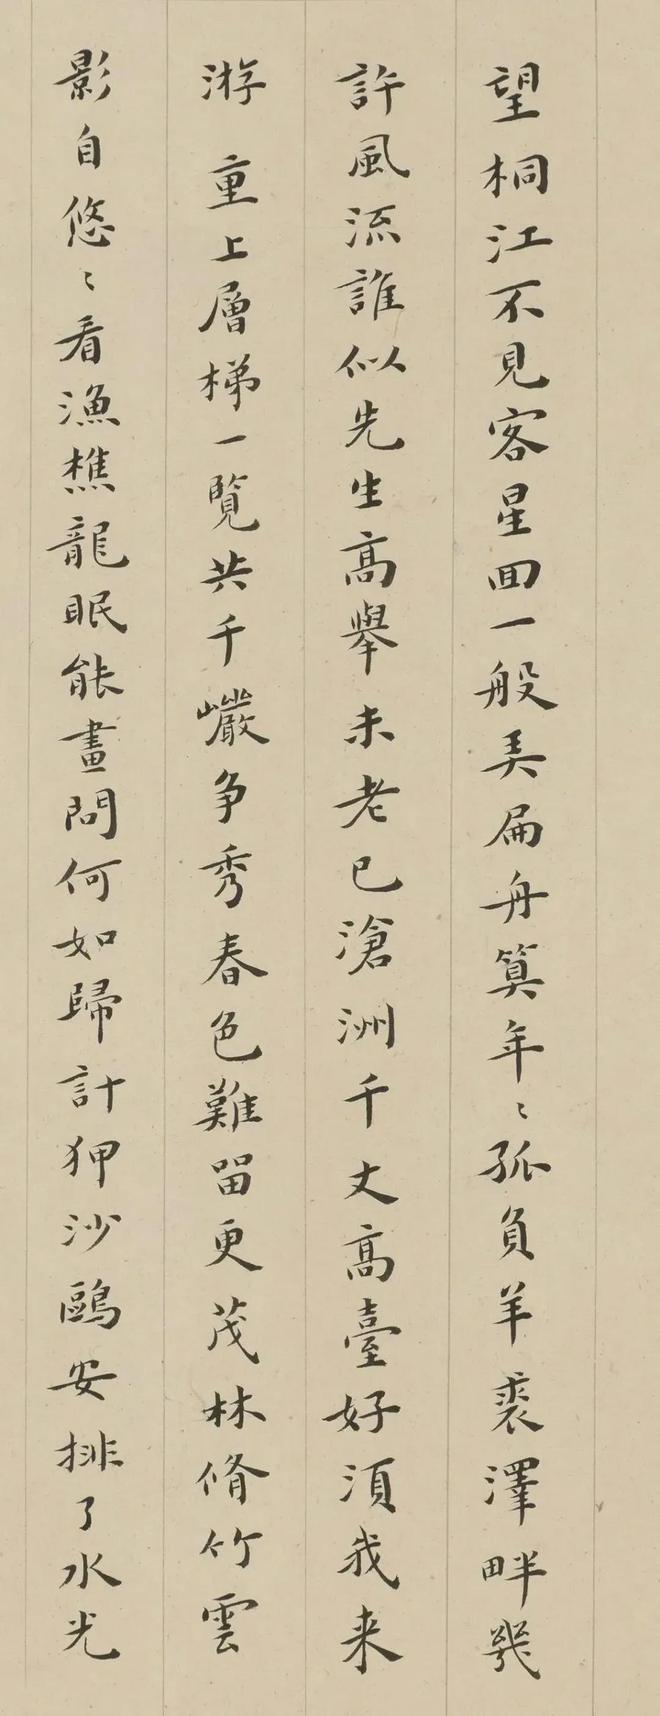 望桐江不見客星回一般美扁舟筭年〻孤負羊裘澤畔幾
許風流誰似先生高舉未老已滄洲千丈高臺好須我来
游 重上層梯一覽共千巖争秀春色難留更茂林脩竹雲
影自悠〻看漁樵龍眠能畫問何如歸計狎沙鷗安排了水光